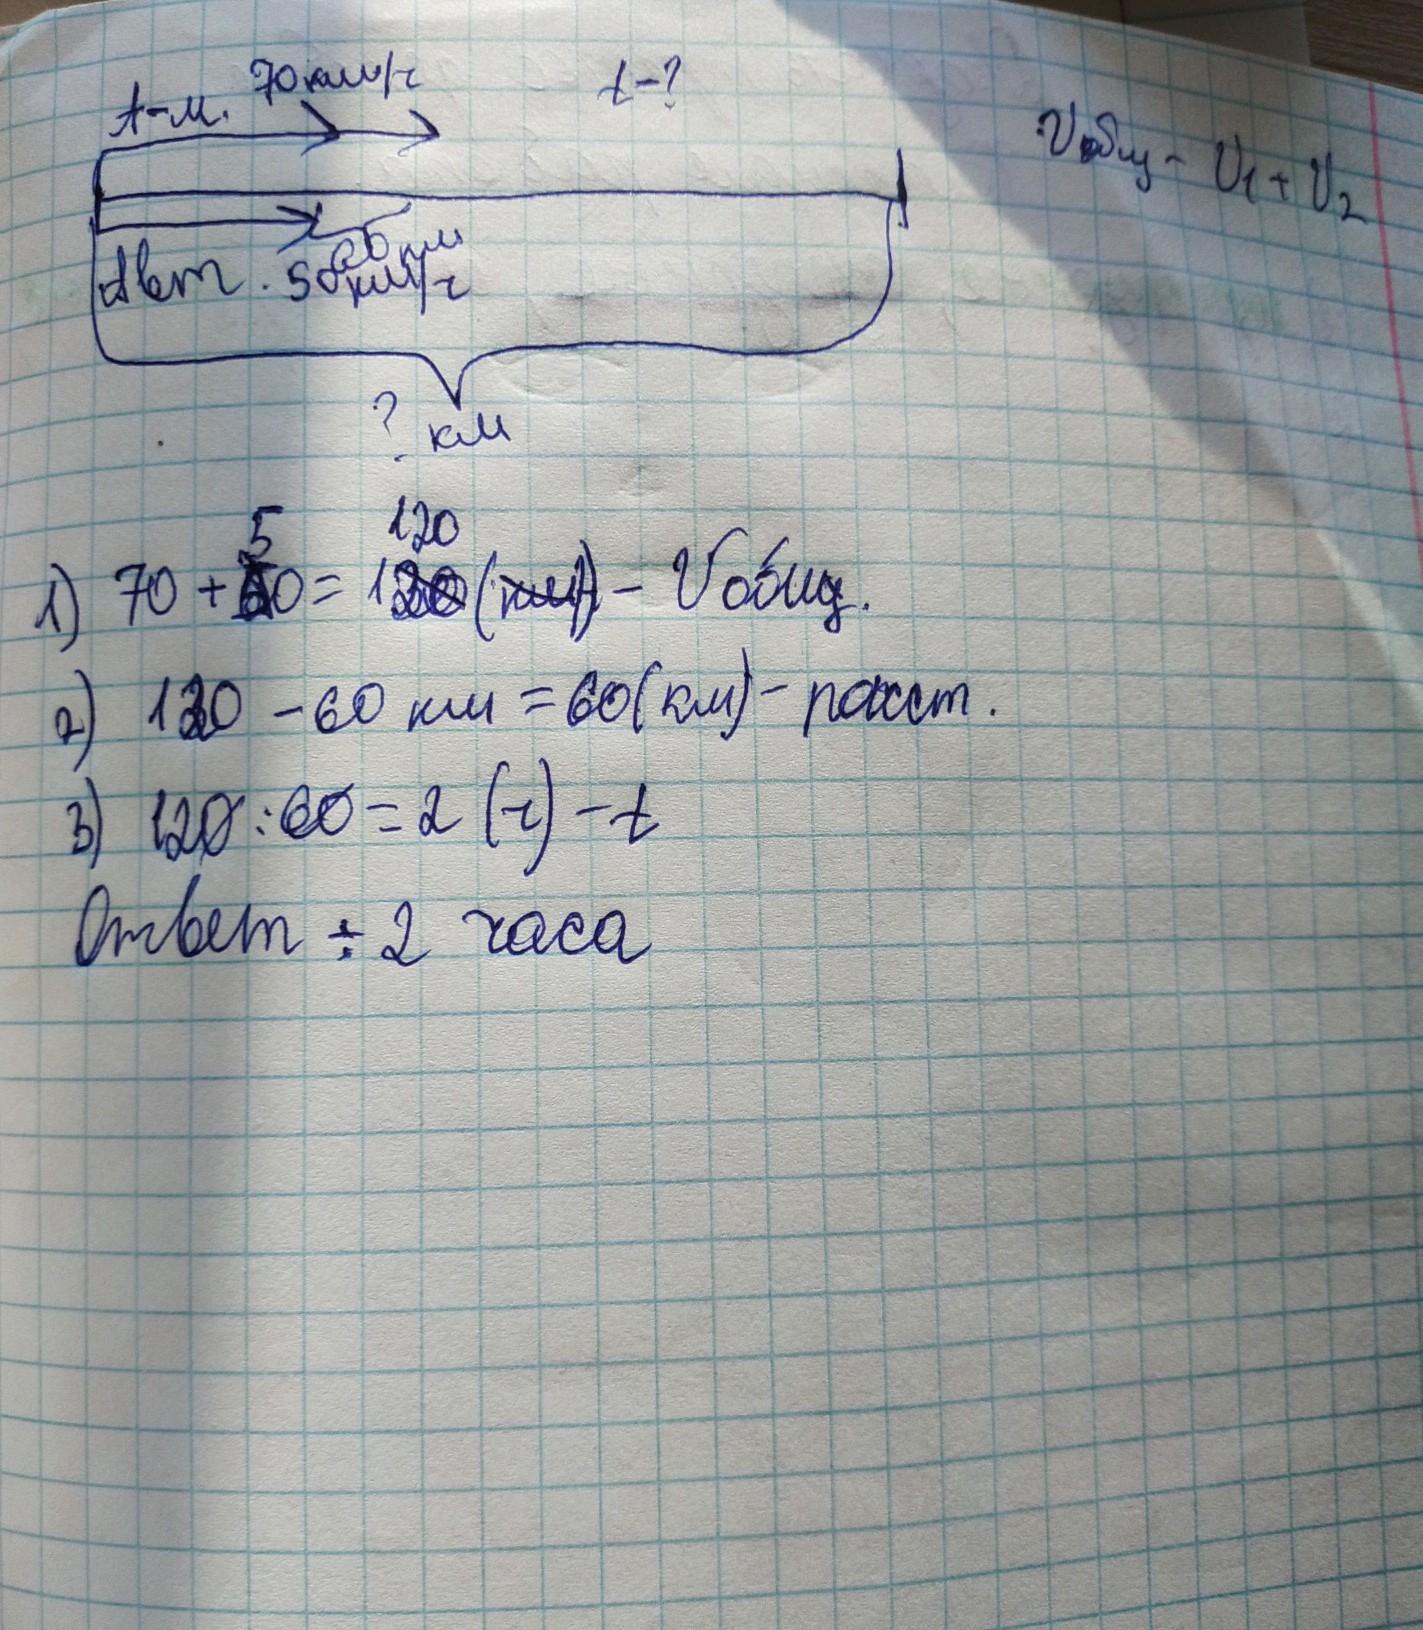 70км/ч t-?
А-м.
Vобщ - V1 + V2
Авт. 50км/ч
60 км
? км
5 120
1) 70 + 50 = 120 (км) - Vобщ.
2) 120 - 60 км = 60(км) - расст.
3) 120 : 60 = 2 (ч) - t
Ответ : 2 часа